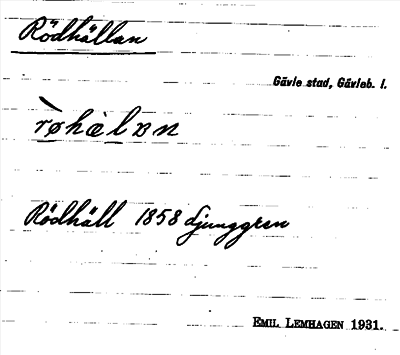 Rödhällan
Gävle stad, Gävleb. l.
Rödhäll 1858 Ljunggren
EMIL LEMHAGEN 1931.